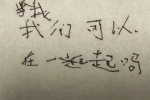 我
我们可以
在一起吗